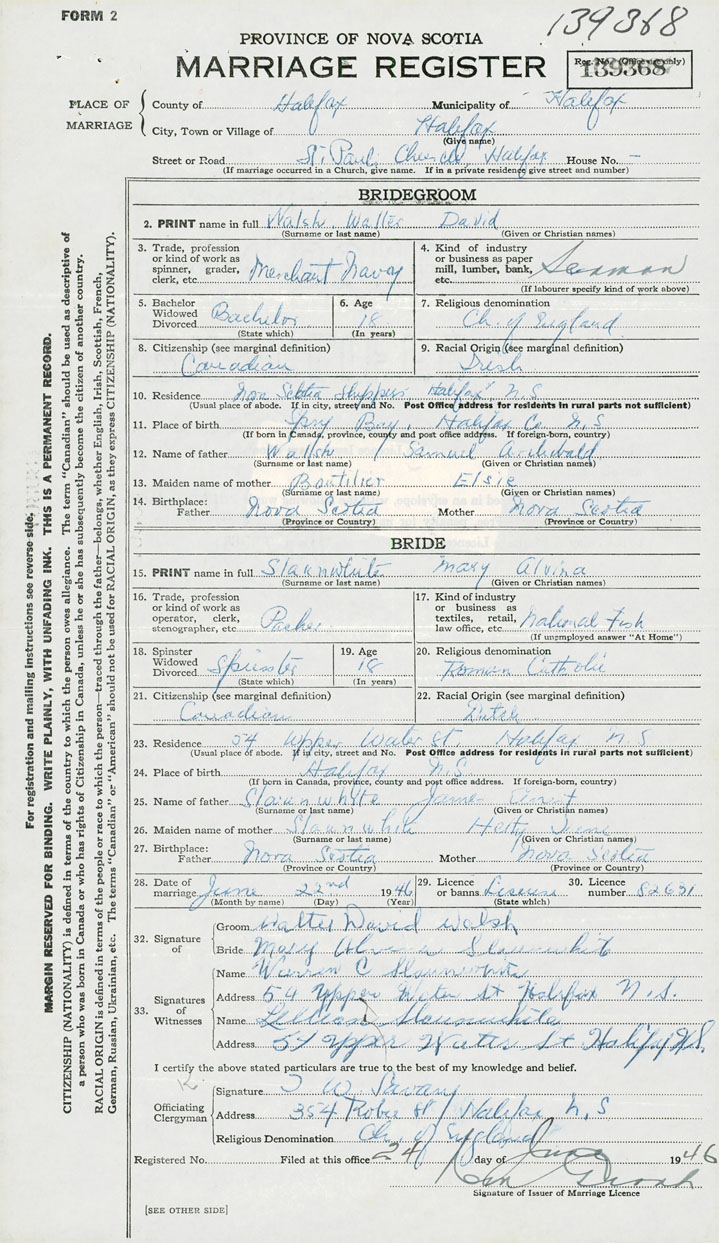 FORM 2
139368
PROVINCE OF NOVA SCOTIA
MARRIAGE REGISTER
Reg. No. (Office use only)
139368
PLACE OF MARRIAGE
County of Halifax Municipality of Halifax
City, Town or Village of Halifax
(Give name)
Street or Road St. Paul's Church Halifax House No. —
(If marriage occurred in a Church, give name. If in a private residence give street and number)
BRIDEGROOM
2. PRINT name in full Walsh Walter David
(Surname or last name) (Given or Christian names)
3. Trade, profession or kind of work as spinner, grader, clerk, etc. Merchant Navy
4. Kind of industry or business as paper mill, lumber, bank, etc. Seaman
(If labourer specify kind of work above)
5. Bachelor Widowed Divorced Bachelor
(State which)
6. Age 18
(In years)
7. Religious denomination Ch. of England
8. Citizenship (see marginal definition) Canadian
9. Racial Origin (see marginal definition) Irish
10. Residence Nova Scotia Shippers Halifax N.S
(Usual place of abode. If in city, street and No. Post Office address for residents in rural parts not sufficient)
11. Place of birth Bay, Halifax Co N.S
(If born in Canada, province, county and post office address. If foreign-born, country)
12. Name of father Walsh Samuel Archibald
(Surname or last name) (Given or Christian names)
13. Maiden name of mother Boutilier Elsie
(Surname or last name) (Given or Christian names)
14. Birthplace: Father Nova Scotia Mother Nova Scotia
(Province or Country) (Province or Country)
BRIDE
15. PRINT name in full Slaunwhite Mary Alvina
(Surname or last name) (Given or Christian names)
16. Trade, profession or kind of work as operator, clerk, stenographer, etc. Packer
17. Kind of industry or business as textiles, retail, law office, etc. National Fish
(If unemployed answer "At Home")
18. Spinster Widowed Divorced Spinster
(State which)
19. Age 18
(In years)
20. Religious denomination Roman Catholic
21. Citizenship (see marginal definition) Canadian
22. Racial Origin (see marginal definition) Dutch
23. Residence 54 Upper Water St. Halifax N S
(Usual place of abode. If in city, street and No. Post Office address for residents in rural parts not sufficient)
24. Place of birth Halifax N.S.
(If born in Canada, province, county and post office address. If foreign-born, country)
25. Name of father Slaunwhite James
(Surname or last name) (Given or Christian names)
26. Maiden name of mother Slaunwhite Hetty Irene
(Surname or last name) (Given or Christian names)
27. Birthplace: Father Nova Scotia Mother Nova Scotia
(Province or Country) (Province or Country)
28. Date of marriage June 22nd 1946
(Month by name) (Day) (Year)
29. Licence or banns License
(State which)
30. Licence number 82631
32. Signature of
Groom Walter David Walsh
Bride Mary Alvina Slaunwhite
33. Signatures of Witnesses
Name Warren C Slaunwhite
Address 54 Upper Water St Halifax N.S.
Name Lillian Slaunwhite
Address 54 Upper Water St Halifax N.S.
I certify the above stated particulars are true to the best of my knowledge and belief.
Officiating Clergyman
Signature T W Savary
Address 354 Robie St Halifax N.S
Religious Denomination Ch. of England
Registered No. Filed at this office 24 day of June 1946
Signature of Issuer of Marriage Licence
[SEE OTHER SIDE]
For registration and mailing instructions see reverse side.
MARGIN RESERVED FOR BINDING. WRITE PLAINLY, WITH UNFADING INK. THIS IS A PERMANENT RECORD.
CITIZENSHIP (NATIONALITY) is defined in terms of the country to which the person owes allegiance. The term "Canadian" should be used as descriptive of
a person who was born in Canada or who has rights of Citizenship in Canada, unless he or she has subsequently become the citizen of another country.
RACIAL ORIGIN is defined in terms of the people or race to which the person—traced through the father—belongs, whether English, Irish, Scottish, French,
German, Russian, Ukrainian, etc. The terms "Canadian" or "American" should not be used for RACIAL ORIGIN, as they express CITIZENSHIP (NATIONALITY).